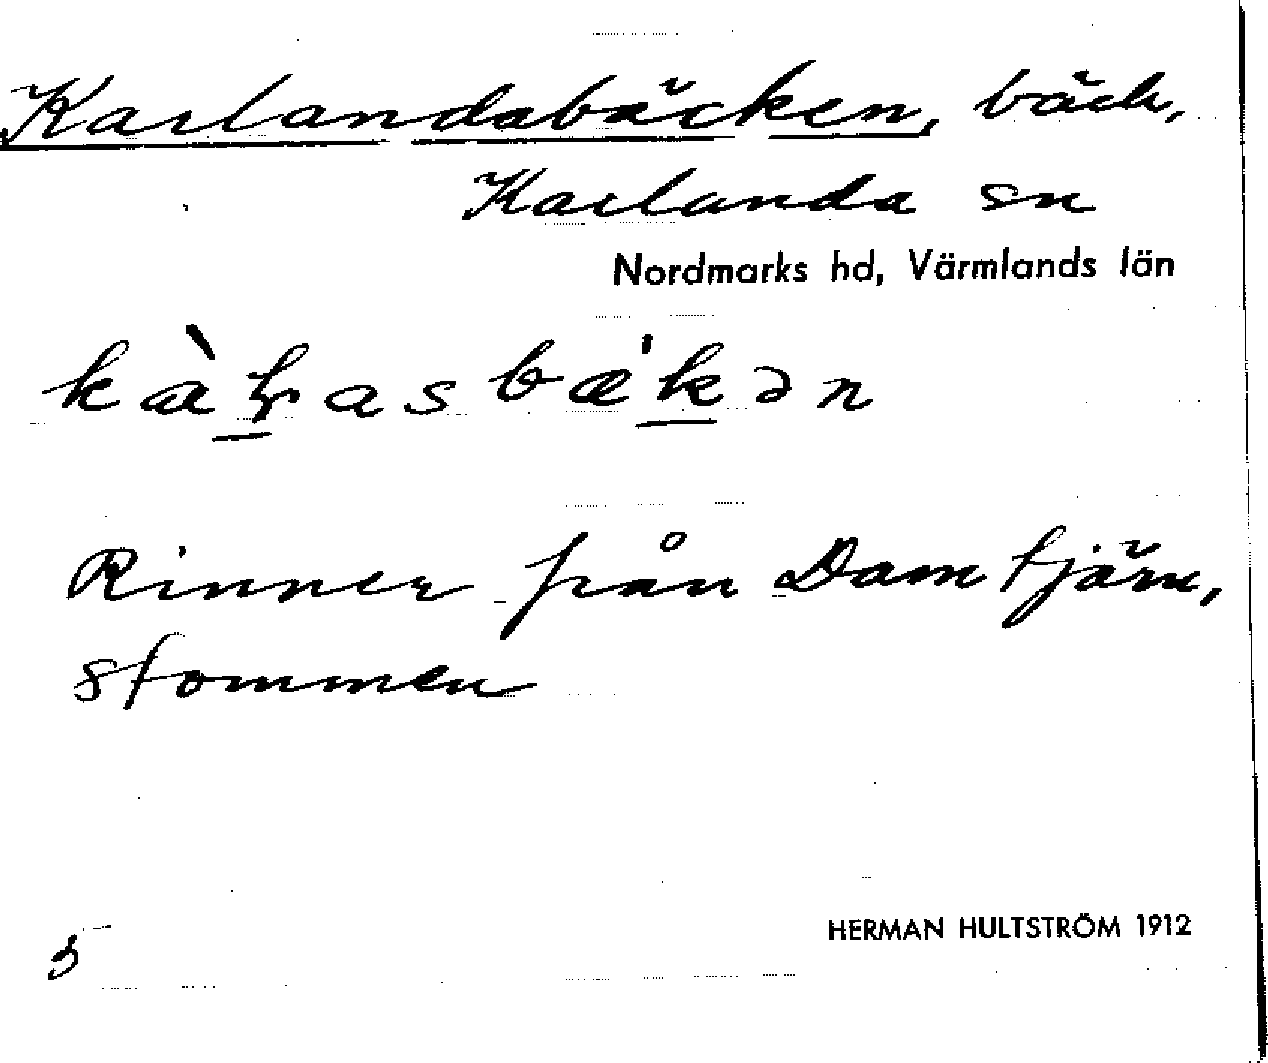 Karlandabäcken, bäck,
Karlanda sn
Nordmarks hd, Värmlands län
Rinner från Damtjärn,
stommen
HERMAN HULTSTRÖM 1912
5